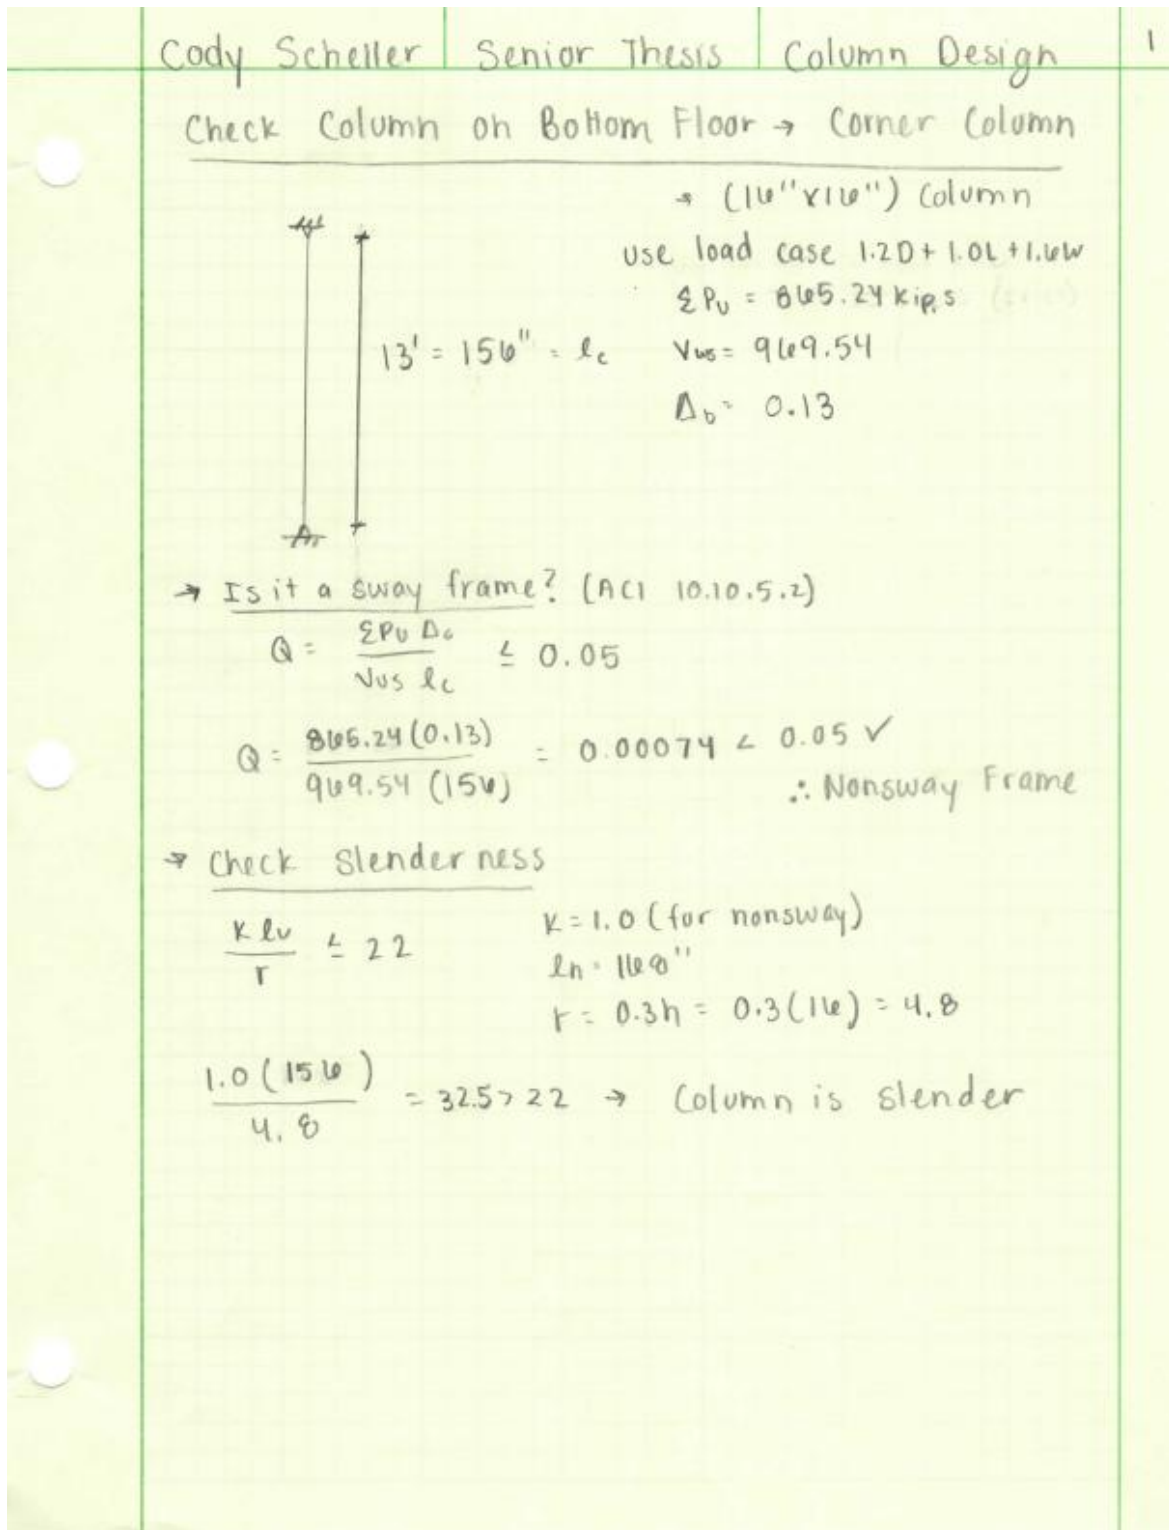 Cody Scheller Senior Thesis Column Design 1
Check Column on Bottom Floor → Corner Column
→ (16"x16") Column
use load case 1.2D + 1.0L + 1.6W
ΣPu = 865.24 kips
13' = 156" = lc
Vus = 969.54
Δo = 0.13
→ Is it a sway frame? (ACI 10.10.5.2)
Q = ΣPu Δo / Vus lc ≤ 0.05
Q = 865.24 (0.13) / 969.54 (156) = 0.00074 < 0.05 ✓
∴ Nonsway Frame
→ Check Slenderness
k lu / r ≤ 22
k = 1.0 (for nonsway)
ln = 168"
r = 0.3h = 0.3(16) = 4.8
1.0 (156) / 4.8 = 32.5 > 22 → Column is slender